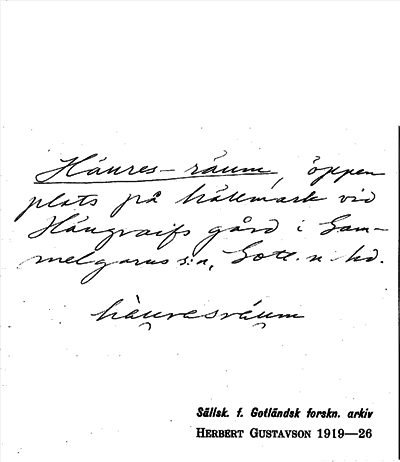 Háures-ráum, öppen
plats på hällmark vid
Hángraifs gård i Gam-
melgarns s:n, Gotl. n. hd.
hàuresráum
Sällsk. f. Gotländsk forskn. arkiv
HERBERT GUSTAVSON 1919—26